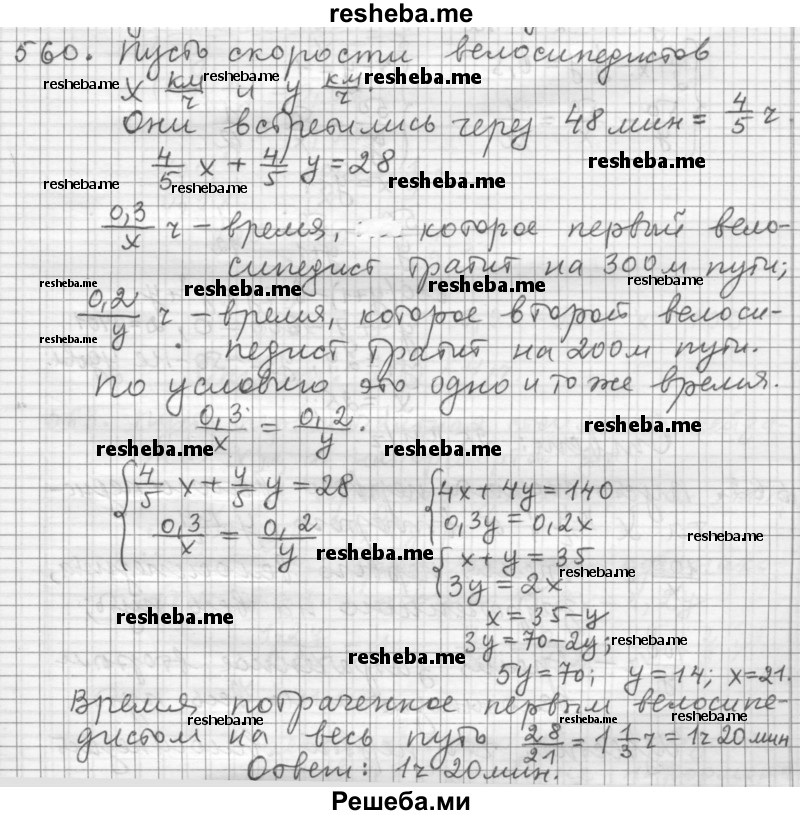 resheba.me
560. Пусть скорости велосипедистов
resheba.me resheba.me resheba.me
x км/ч и y км/ч.
Они встретились через 48 мин = 4/5 ч
resheba.me
4/5 x + 4/5 y = 28
resheba.me resheba.me resheba.me
0,3/x ч – время, которое первый вело-
сипедист тратит на 300 м пути;
resheba.me resheba.me resheba.me resheba.me
0,2/y ч – время, которое второй велоси-
resheba.me
педист тратит на 200 м пути.
По условию это одно и то же время.
0,3/x = 0,2/y.
resheba.me
resheba.me resheba.me
{ 4/5 x + 4/5 y = 28 { 4x + 4y = 140
0,3/x = 0,2/y 0,3y = 0,2x
resheba.me
resheba.me
{ x + y = 35
resheba.me
3y = 2x
resheba.me
x = 35 – y
3y = 70 – 2y; resheba.me
resheba.me
5y = 70; y = 14; x = 21.
Время, потраченное первым велосипе-
resheba.me resheba.me resheba.me
дистом на весь путь 28/21 = 1 1/3 ч = 1 ч 20 мин
Ответ: 1 ч 20 мин.
Решеба.ми